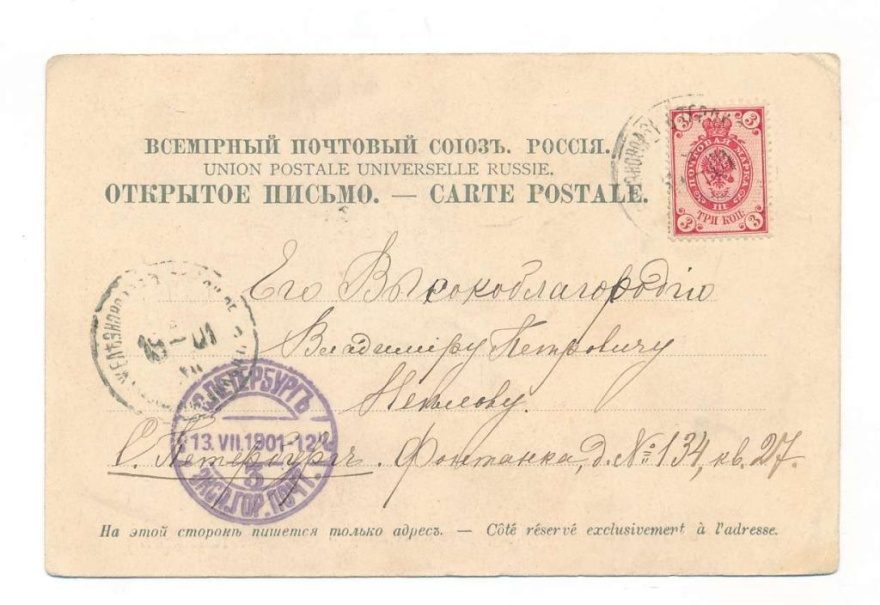 ВСЕМІРНЫЙ ПОЧТОВЫЙ СОЮЗЪ. РОССІЯ.
UNION POSTALE UNIVERSELLE RUSSIE.
ОТКРЫТОЕ ПИСЬМО. — CARTE POSTALE.
3 3
ПОЧТОВАЯ МАРКА
III
ТРИ КОП.
3 3
Его Высокоблагородію
Владиміру Петровичу
Неклюдову.
С.ПЕТЕРБУРГЪ
13.VII.1901-12
5
ГОР. ПОЧТ.
С. Петербургъ. Фонтанка, д. № 134, кв. 27.
На этой сторонѣ пишется только адресъ. — Côté réservé exclusivement à l'adresse.